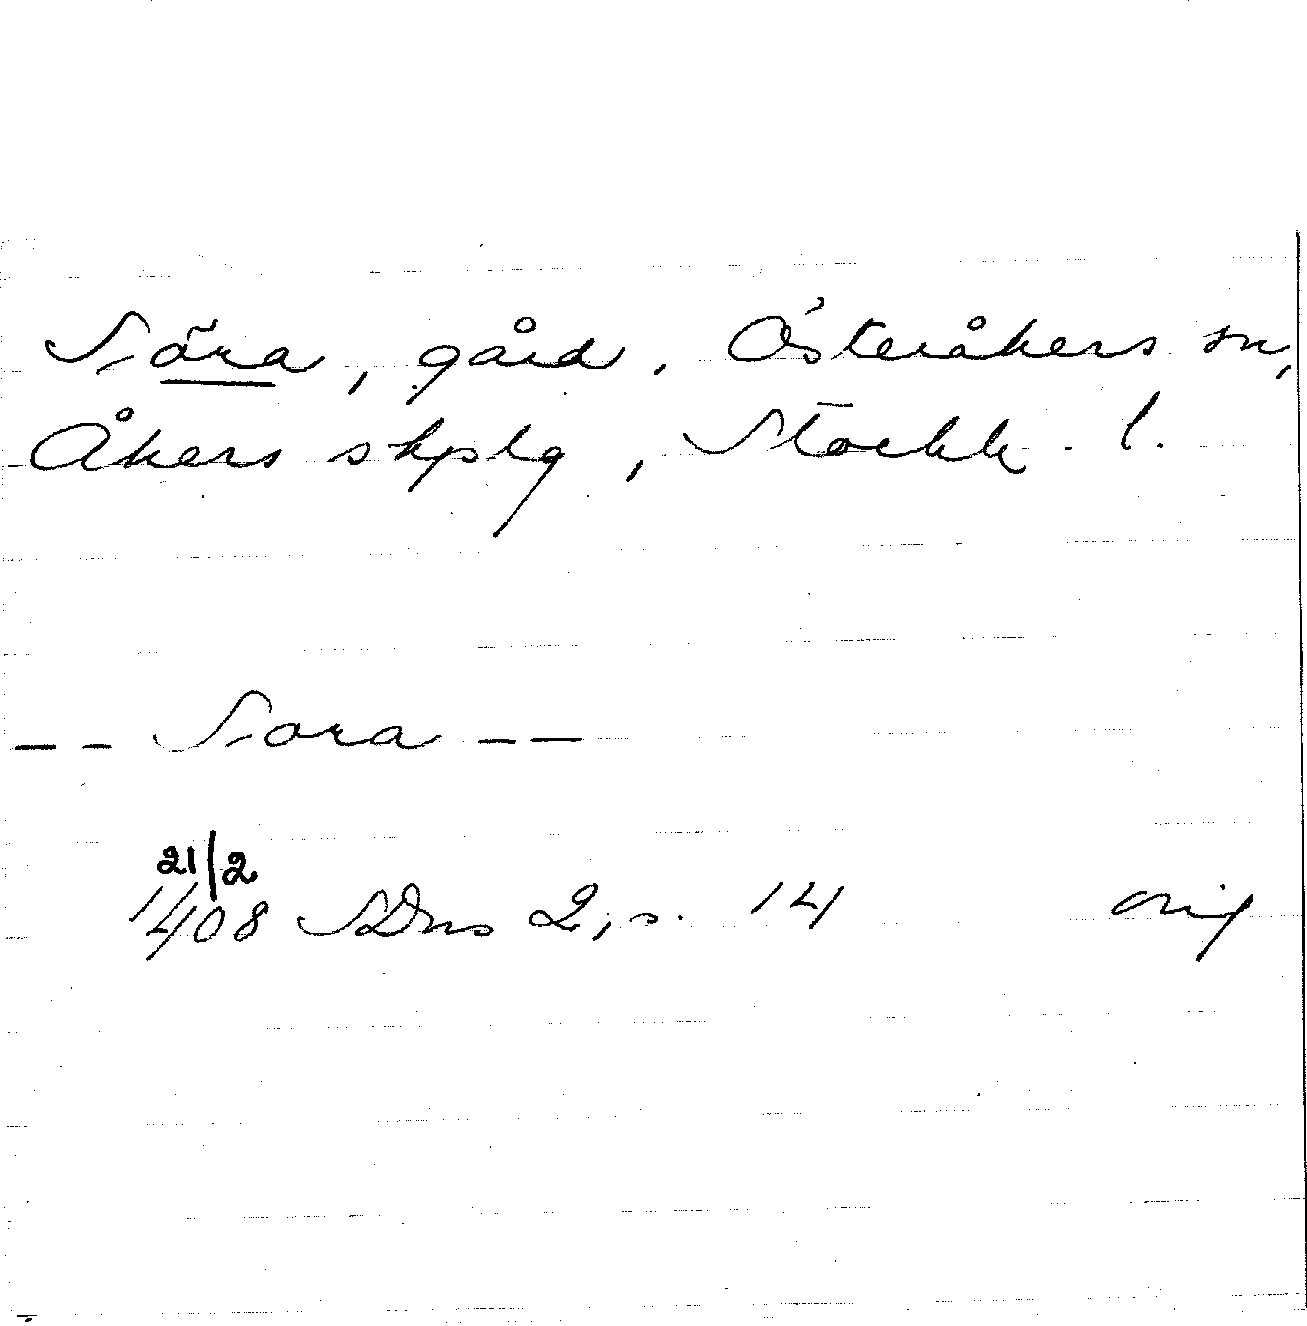 Nöra, gård, Österåkers sn,
Åkers skplg, Stockh. l.
-- Nora --
21/2
1408 SDns 2, s. 14 orig